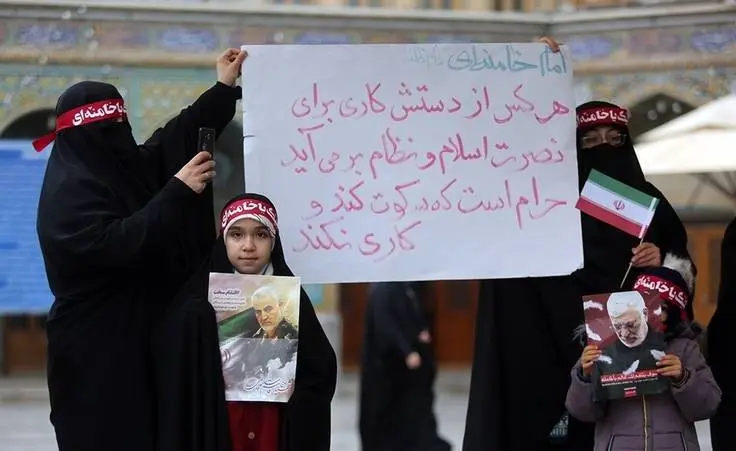 امام خامنه‌ای
هر کس از دستش کاری برای
نصرت اسلام و نظام بر می آید
حرام است که سکوت کند و
کاری نکند
لبیک یا خامنه‌ای
یا خامنه‌ای
یا خامنه‌ای
انتقام سخت